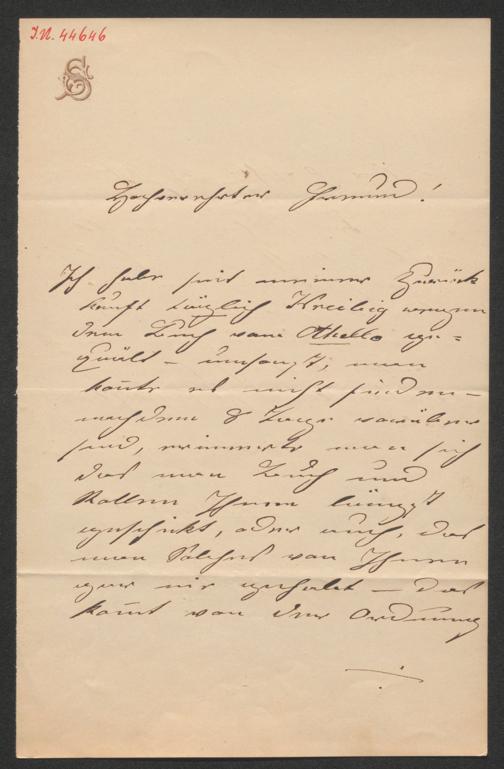 I.N. 44646
S
Hochverehrter Freund!
Ich habe seit meiner Zurück
kunft täglich Kreibig wegen
dem Buch vom Othello ge=
quält – umsonst, man
konnte es nicht finden –
nachdem 8 Tage vorüber
sind, erinnerte man sich
das man Buch und
Rollen Ihnen längst
geschickt, oder auch, das
man Solches von Ihnen
gar nie gehabt – das
kommt von der Ordnung